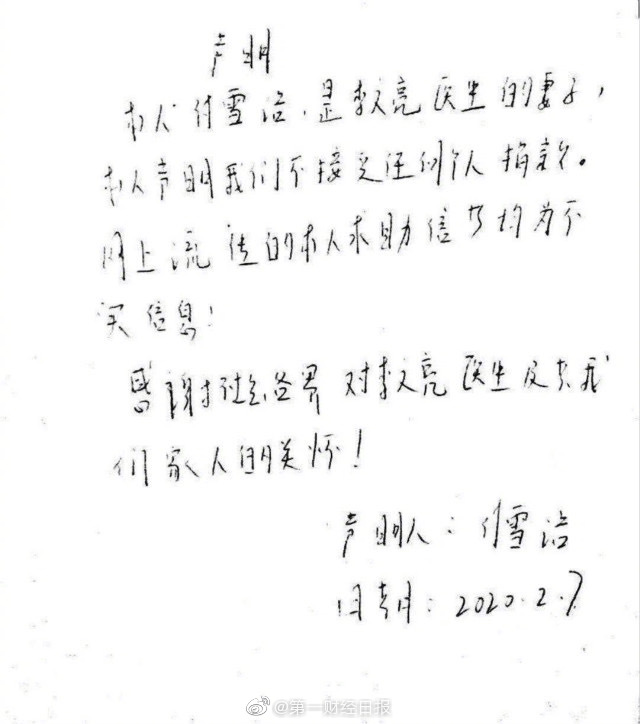 声明
本人付雪洁,是李文亮医生的妻子,
本人声明我们不接受任何个人捐款。
网上流传的本人求助信息均为不
实信息!
感谢社会各界对李文亮医生及其我
们家人的关怀!
声明人:付雪洁
日期:2020.2.7
@第一财经日报